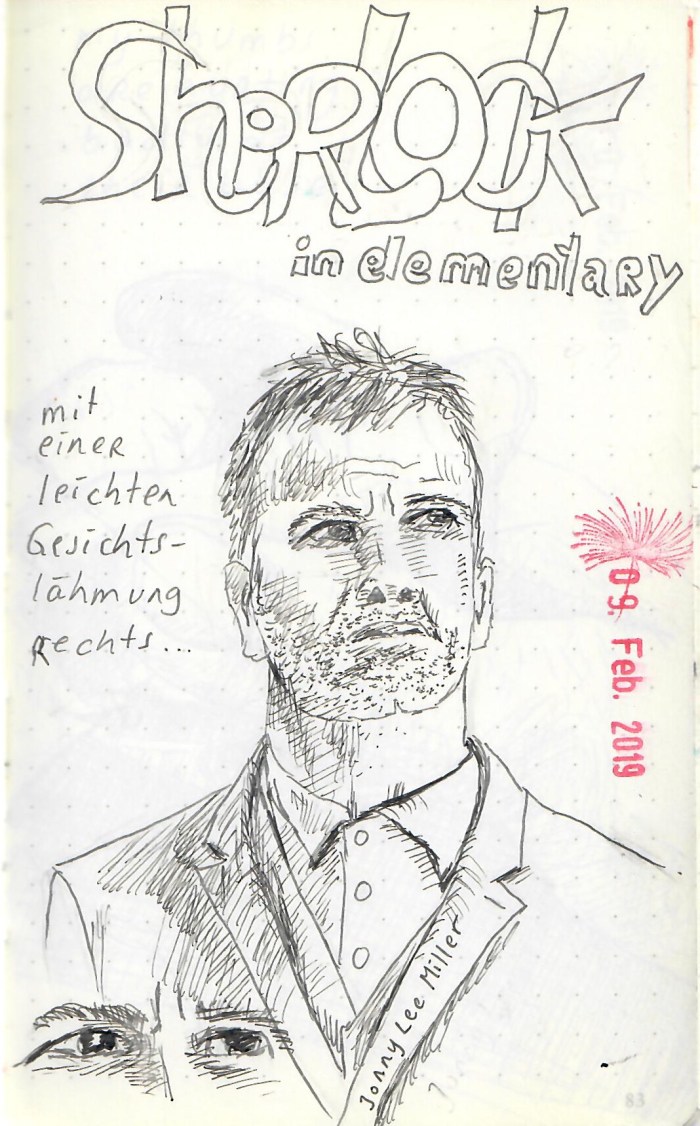 SheRLock
in elementaRy
mit
einer
leichten
Gesichts-
lähmung
rechts...
09. Feb. 2019
Jonny Lee Miller
83